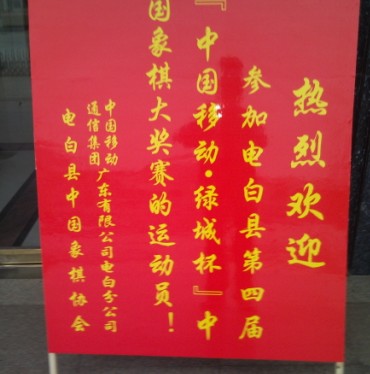 热烈欢迎
参加电白县第四届
『中国移动·绿城杯』中
国象棋大奖赛的运动员！
中国移动
通信集团
广东有限公司电白分公司
电白县中国象棋协会